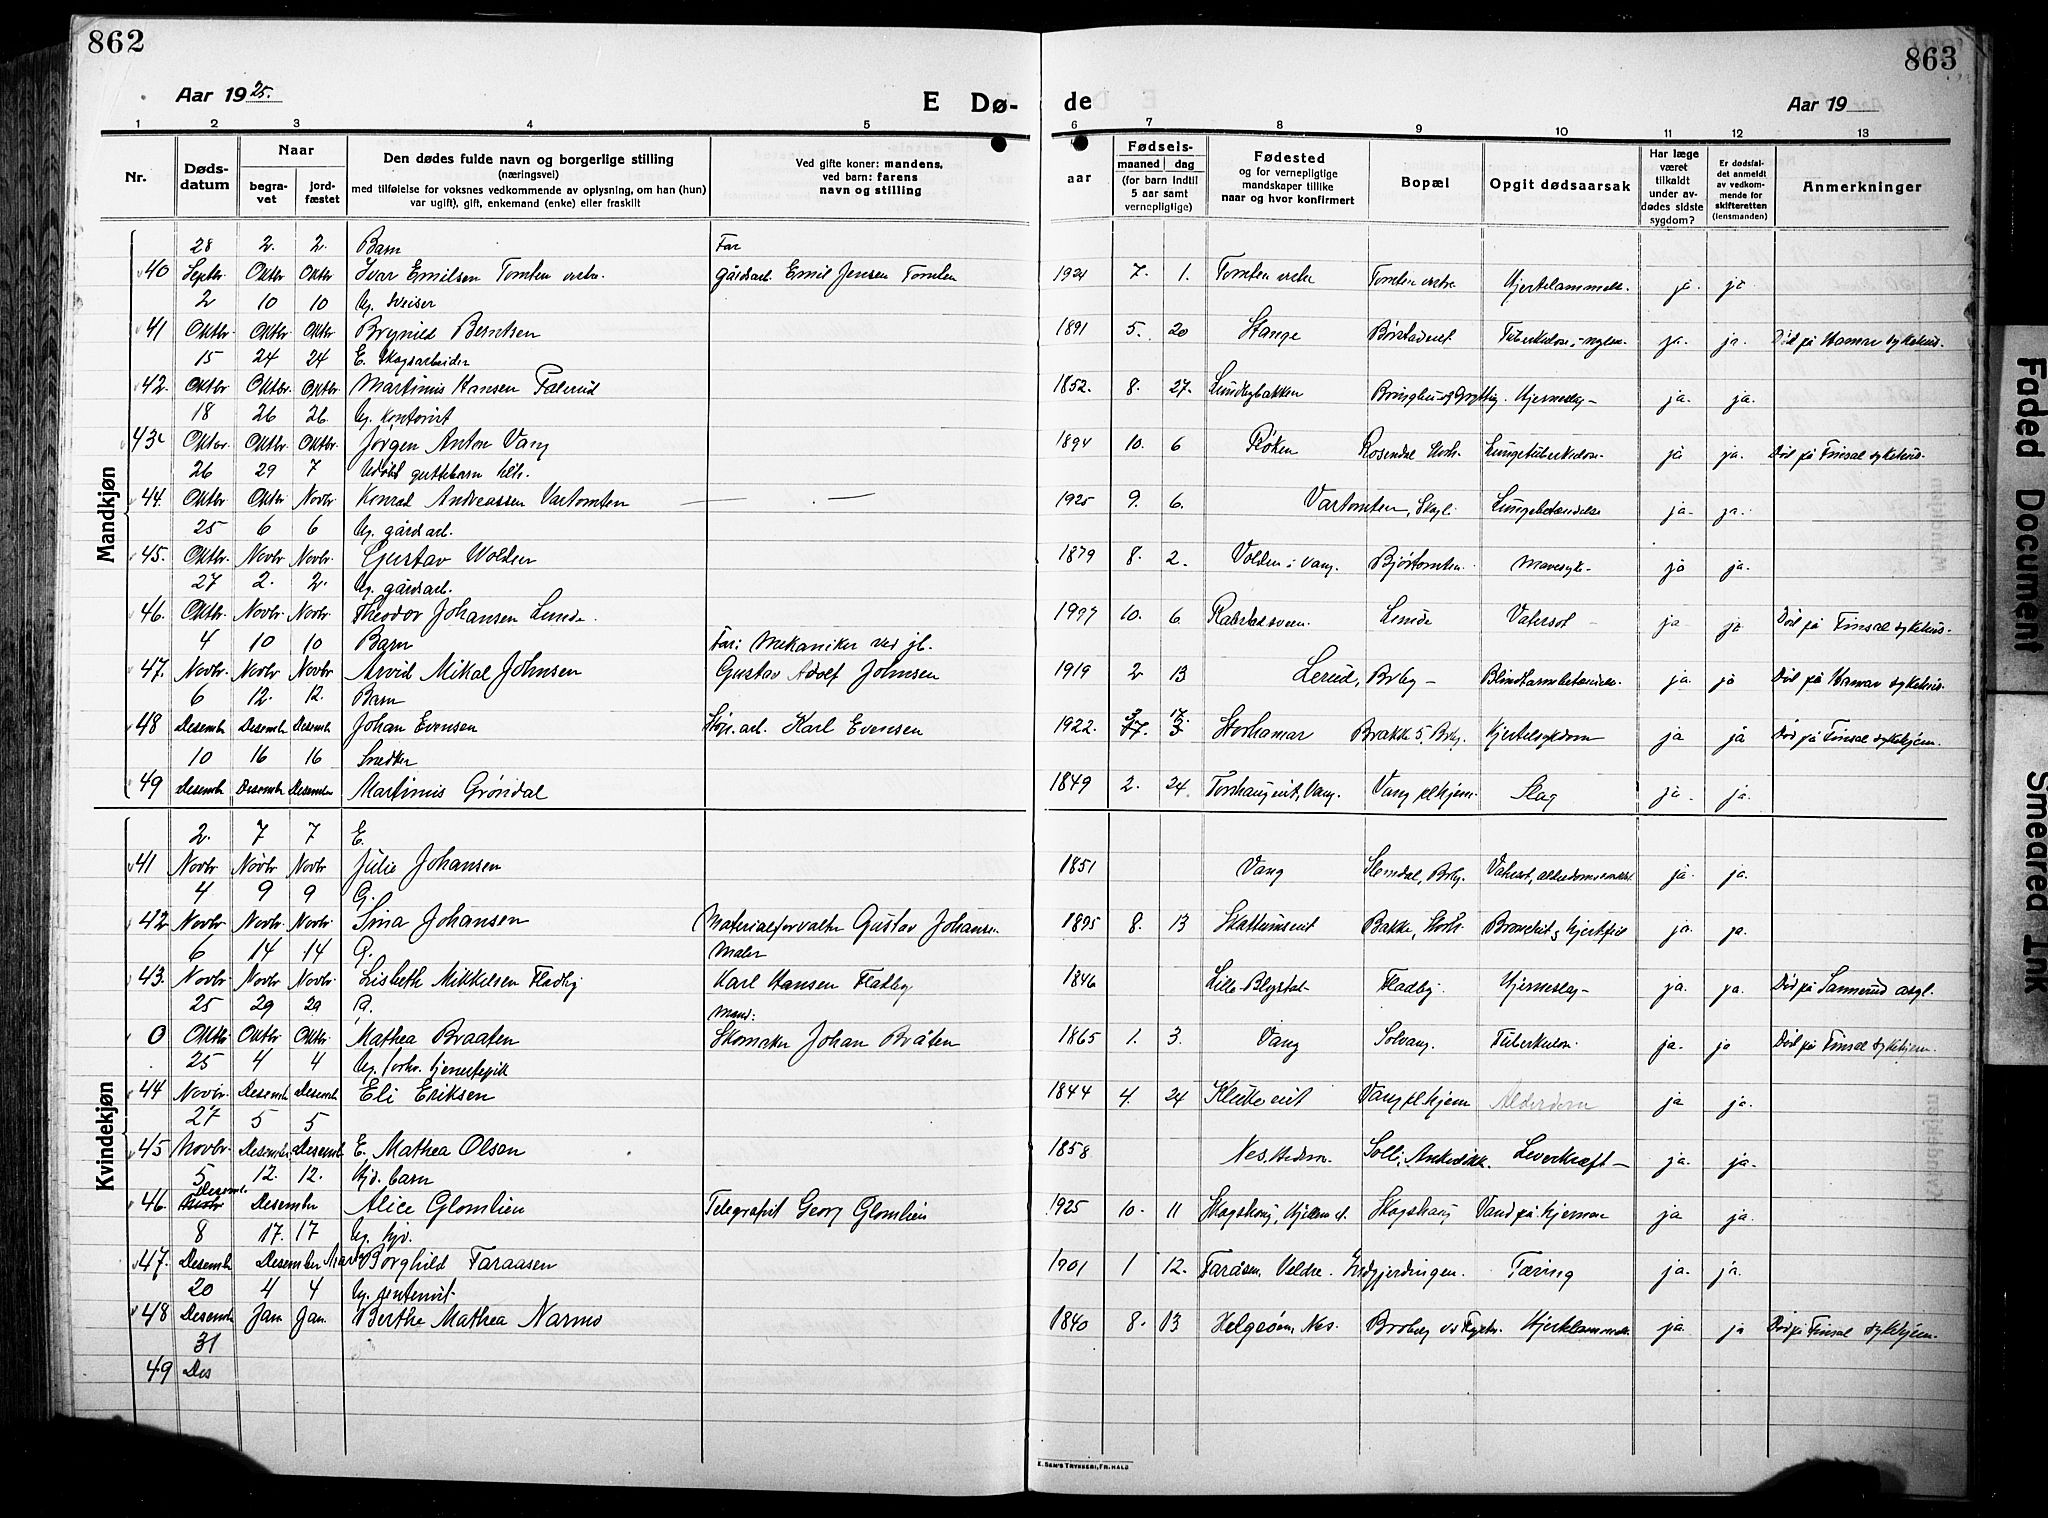 862
863
Aar 1925.
E Dø-
de
Aar 19
1 2 3 4 5 6 7 8 9 10 11 12 13
Nr.
Døds-
datum
Naar
begra-
vet
jord-
fæstet
Den dødes fulde navn og borgerlige stilling
(næringsvei)
med tilføielse for voksnes vedkommende av oplysning, om han (hun)
var ugift), gift, enkemand (enke) eller fraskilt
Ved gifte koner: mandens,
ved barn: farens
navn og stilling
Fødsels-
aar
maaned dag
(for barn indtil
5 aar samt
vernepligtige)
Fødested
og for vernepligtige
mandskaper tillike
naar og hvor konfirmert
Bopæl
Opgit dødsaarsak
Har læge
været
tilkaldt
under av-
dødes sidste
sygdom?
Er dødsfal-
det anmeldt
av vedkom-
mende for
skifteretten
(lensmanden)
Anmerkninger
Mandkjøn
28 2. 2. Barn Far
40 Septbr. Oktbr Oktbr Ivar Emilsen Tomten østre. gårdsarb. Emil Jensen Tomten 1921 7. 1. Tomten østre Tomten østre Hjertelammelse. ja. ja
2 10 10 Ug. Sveiser
41 Oktbr. Oktbr. Oktbr. Brynild Berntsen 1891 5. 20 Stange Tuberkulose i ja. ja. Död på Hamar sykehus.
15 24 24 E. Skogsarbeider
42. Oktbr Oktbr. Oktbr Martinus Hansen Falerud 1852. 8. 27. Lundbybakken Hjerneslag – ja. ja.
18 26 26 Ug. kontorist
43. Oktbr. Oktbr. Oktbr. Jørgen Anton Vang 1894 10. 6 Røken Rosendal Storh. Lungetuberkulose. ja ja. Död på Finsal sykehus.
26 29 7 Udøbt guttebarn
44. Oktbr Oktbr Novbr Konrad Andreassen Vartomten — . — 1925 9. 6. Vartomten, Lungebetændelse ja. ja.
25 6 6 Ug. gårdsarb.
45. Oktbr. Novbr Novbr. Gustav Wolden 1879 8. 2. Volden i Vang. Bjørtomten. Mavesyk. ja ja.
27 2. 2. Ug. gårdsarb.
46. Oktbr. Novbr Novbr. Theodor Johansen Lunde. 10. 6 Lunde Vatersot – ja ja Död på Finsal sykehus.
4 10 10 Barn Far: Mekaniker ved jb.
47. Novbr. Novbr. Novbr. Arvid Mikal Johnsen Gustav Adolf Johnsen 1919 2 13 Lerud, Brby – Blindtarmbetændelse. ja. ja Död på Hamar sykehus.
6 12. 12. Barn 3 17
48 Desembr Desembr Desembr Johan Evensen Karl Evensen 1922. 17. 3 Storhamar Brakke 5, Brby. Kjertelsykdom ja ja Död på Finsal sykehjem.
10 16 16 Snedker
49 Desembr Desembr Desembr Martinus Grøndal 1849 2. 24 Vang. Vang plhjem. Slag ja. ja.
Kvindekjøn
2. 7 7 E.
41 Novbr Novbr Novbr. Julie Johansen 1851 Vang Slemdal, Brby. Vatersot, ja. ja.
4 9 9 G.
42 Novbr Novbr. Novbr. Sina Johansen Materialforvalter Gustav Johansen 1895 8. 13 Skattumseiet Bakke, Storh. ja. ja.
6 14 14 G. Maler
43. Novbr. Novbr. Novbr. Lisbeth Mikkelsen Fladby Karl Hansen Fladby 1846 Fladby. Hjerneslag – ja. ja. Död på Sannerud asyl.
25 29 29 G. Mand:
0 Oktbr Oktbr Oktbr. Mathea Braaten Skomaker Johan Bråten 1865 1. 3. Vang Solvang. Tuberkulose. ja. ja Död på Finsal sykehjem.
25 4 4 Ug. forhv. tjenestepik
44 Novbr. Desembr Desembr Eli Eriksen 1844 4. 24 Klukeeiet Vang plhjem Alderdom ja ja.
27 5 5
45 Novbr. Desembr Desembr. E. Mathea Olsen 1858 Nes, Hedem. Solli, Ankerløkk. Leverkræft – ja. ja.
5 12. 12. Hjd. barn
Desembr.
46. Novbr Desembr Alice Glomlien Telegrafist Georg Glomlien 1925 10. 11 Skogshaug, Skogshaug Vand på hjernen ja ja.
8 17. 17 Ug. hjv.
47. Desembr Desembr Borghild Faraasen 1901 1 12. Faråsen, Veldre. Endgjerdingen. Tæring ja. ja.
20 4 4 Ug. rentenist.
48 Desembr Jan Jan. Berthe Mathea Narmo 1840 8. 13 Helgeøen, Nes. Broberg Hjertelammelse. ja. ja Död på Finsal sykehjem.
31
49 Des
E. SEM'S TRYKKERI, FR.HALD
Faded Document
Smeared Ink